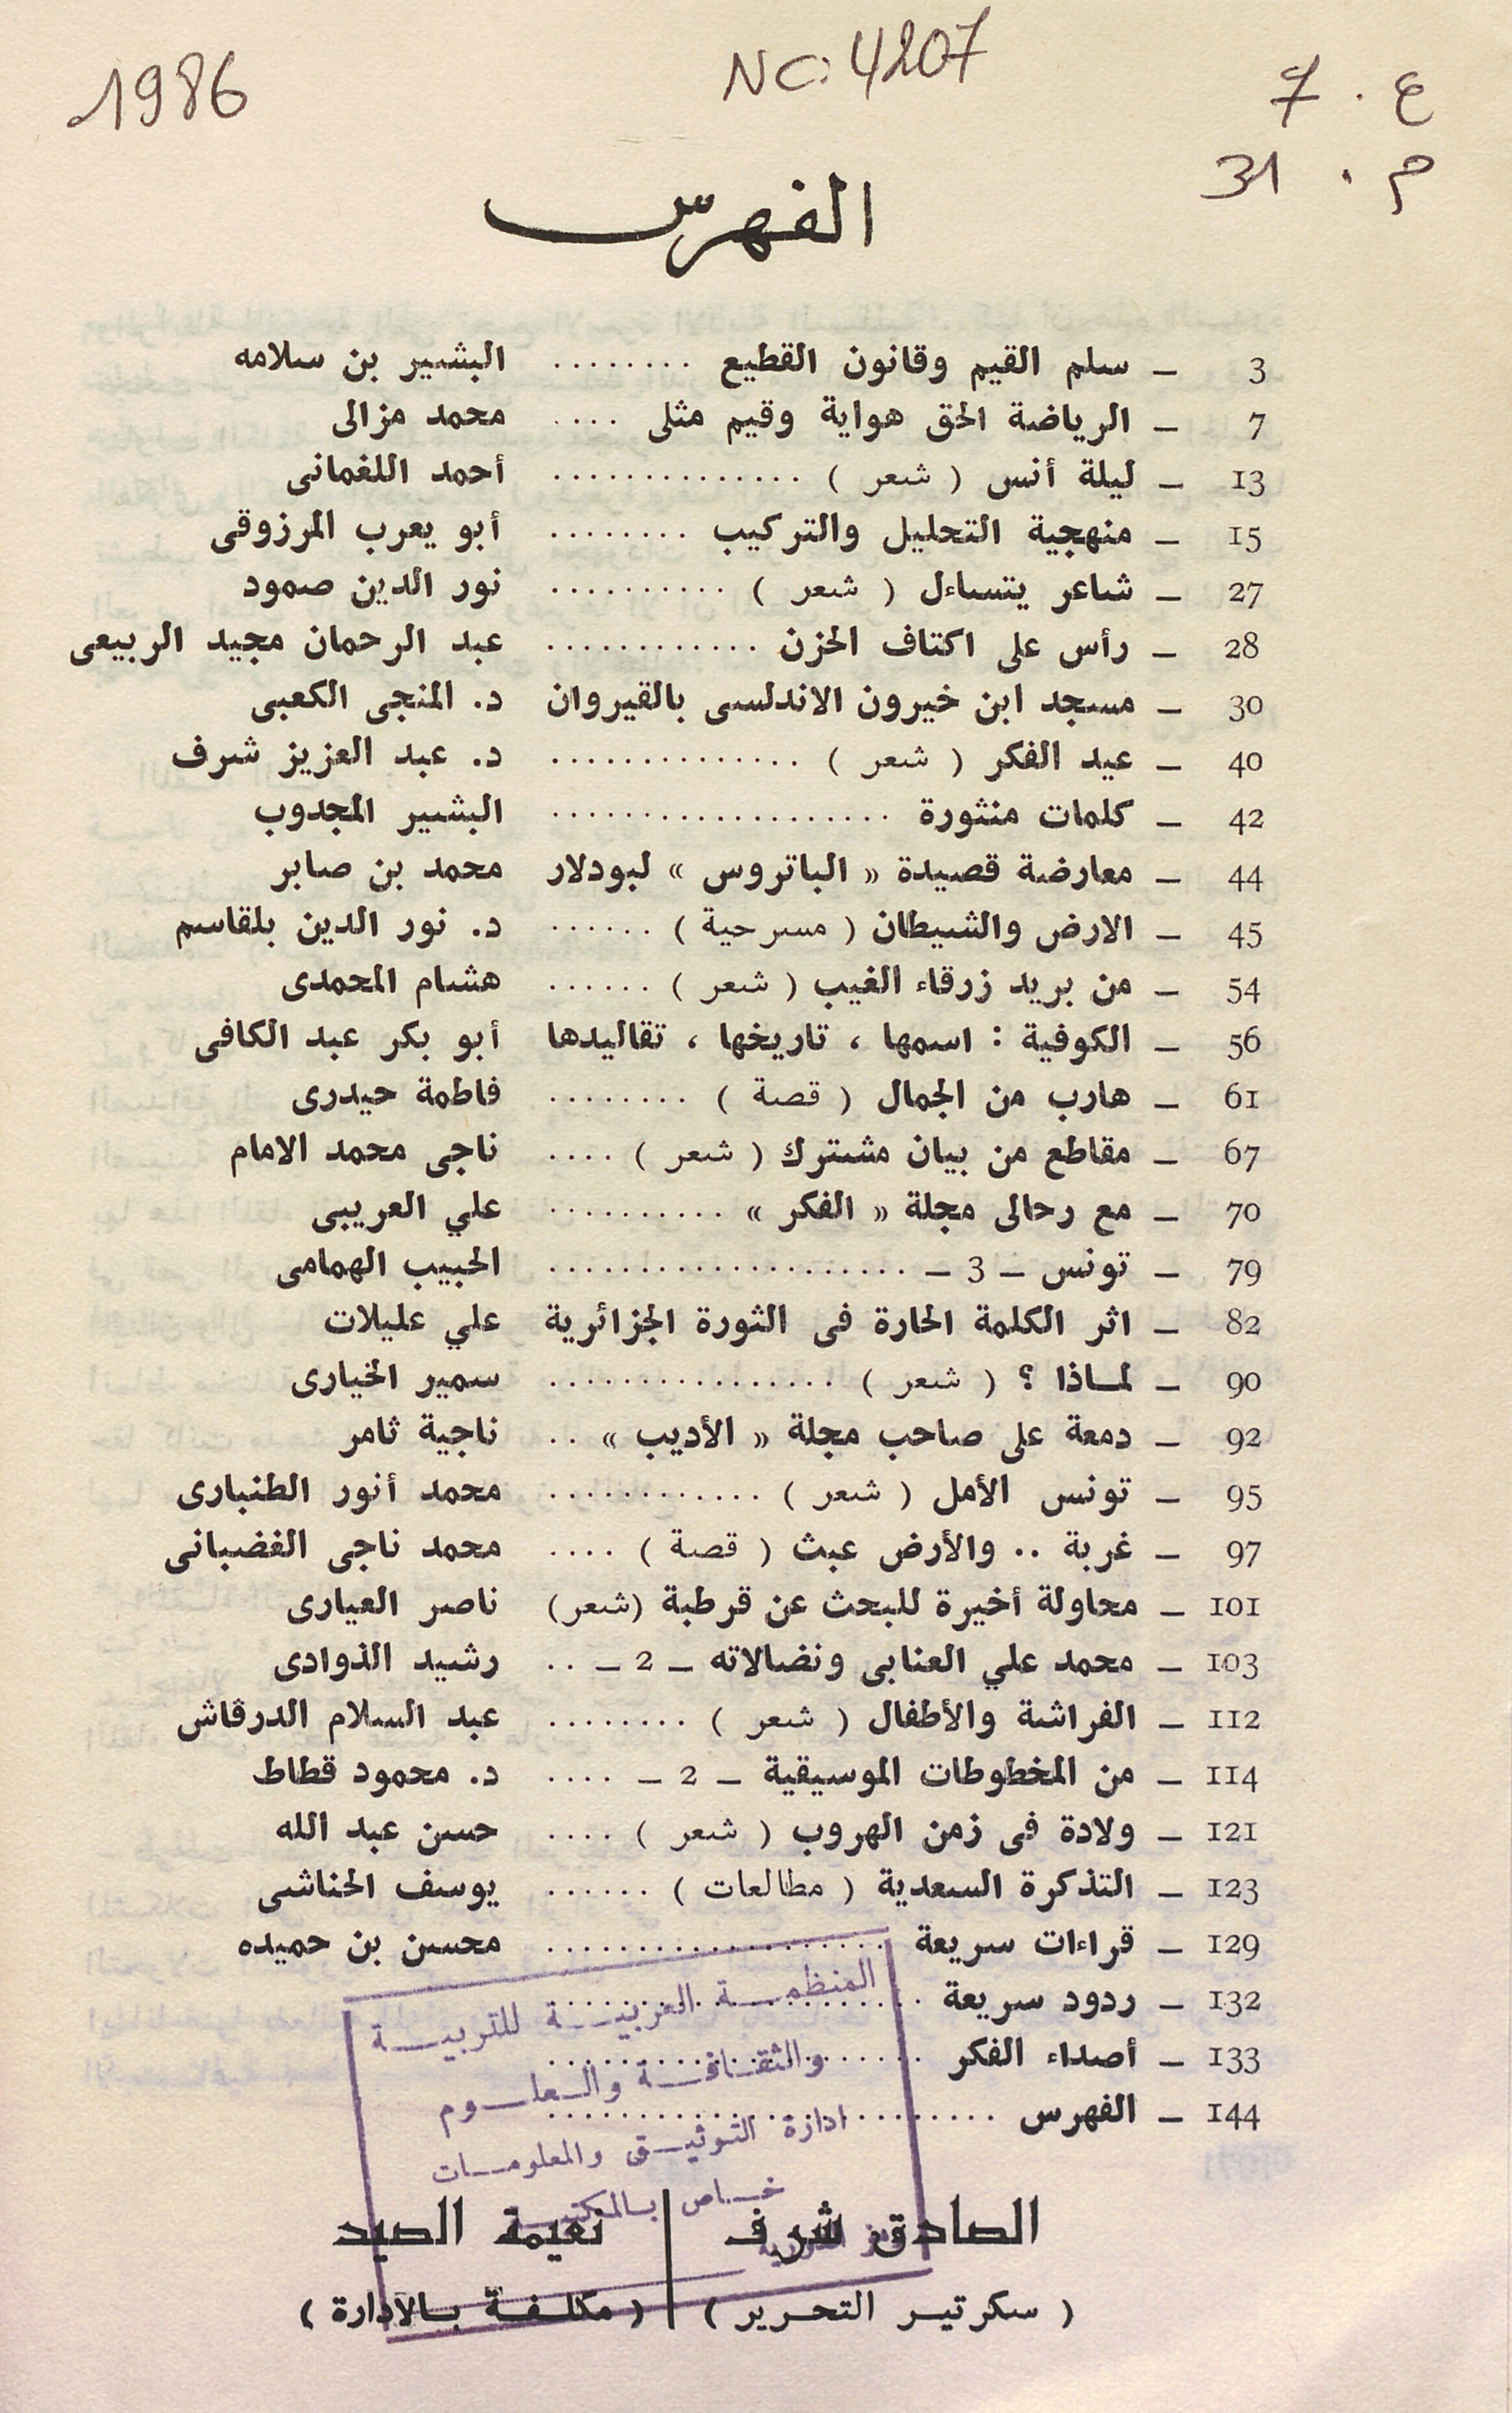 1986
NC: 4207
ع . 7
م . 31
الفهرس
3 – سلم القيم وقانون القطيع ........ البشير بن سلامه
7 – الرياضة الحق هواية وقيم مثلى .... محمد مزالى
13 – ليلة أنس ( شعر ) .............. أحمد اللغمانى
15 – منهجية التحليل والتركيب ........ أبو يعرب المرزوقى
27 – شاعر يتساءل ( شعر ) .......... نور الدين صمود
28 – رأس على اكتاف الحزن ............ عبد الرحمان مجيد الربيعى
30 – مسجد ابن خيرون الاندلسى بالقيروان د. المنجى الكعبى
40 – عيد الفكر ( شعر ) .............. د. عبد العزيز شرف
42 – كلمات منثورة .................... البشير المجدوب
44 – معارضة قصيدة « الباتروس » لبودلار محمد بن صابر
45 – الارض والشيطان ( مسرحية ) ...... د. نور الدين بلقاسم
54 – من بريد زرقاء الغيب ( شعر ) ...... هشام المحمدى
56 – الكوفية : اسمها ، تاريخها ، تقاليدها أبو بكر عبد الكافى
61 – هارب من الجمال ( قصة ) ........ فاطمة حيدرى
67 – مقاطع من بيان مشترك ( شعر ) .... ناجى محمد الامام
70 – مع رحالى مجلة « الفكر » .......... علي العريبى
79 – تونس – 3 – ..................... الحبيب الهمامى
82 – اثر الكلمة الحارة فى الثورة الجزائرية علي عليلات
90 – لماذا ؟ ( شعر ) ................ سمير الخيارى
92 – دمعة على صاحب مجلة « الأديب » .. ناجية ثامر
95 – تونس الأمل ( شعر ) ............ محمد أنور الطنبارى
97 – غربة .. والأرض عبث ( قصة ) .... محمد ناجى الغضبانى
101 – محاولة أخيرة للبحث عن قرطبة (شعر) ناصر العيارى
103 – محمد علي العنابى ونضالاته – 2 – .. رشيد الذوادى
112 – الفراشة والأطفال ( شعر ) ........ عبد السلام الدرقاش
114 – من المخطوطات الموسيقية – 2 – .... د. محمود قطاط
121 – ولادة فى زمن الهروب ( شعر ) .... حسن عبد الله
123 – التذكرة السعدية ( مطالعات ) ...... يوسف الحناشى
129 – قراءات سريعة .................... محسن بن حميده
132 – ردود سريعة ......................
133 – أصداء الفكر ......................
144 – الفهرس ..........................
المنظمة العربية للتربية
والثقافة والعلوم
ادارة التوثيق والمعلومات
خاص بالمكتبة
الصادق شرف | نعيمة الصيد
( سكرتير التحرير ) | ( مكلفة بالادارة )